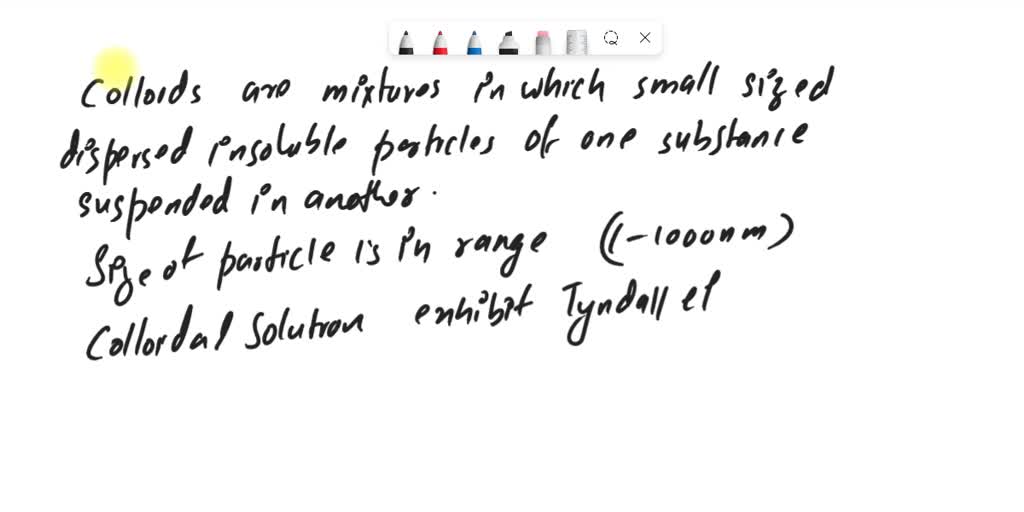 Colloids are mixtures in which small sized
dispersed insoluble particles of one substance
suspended in another.
Size of particle is in range (1-1000nm)
Colloidal solution exhibit Tyndall ef